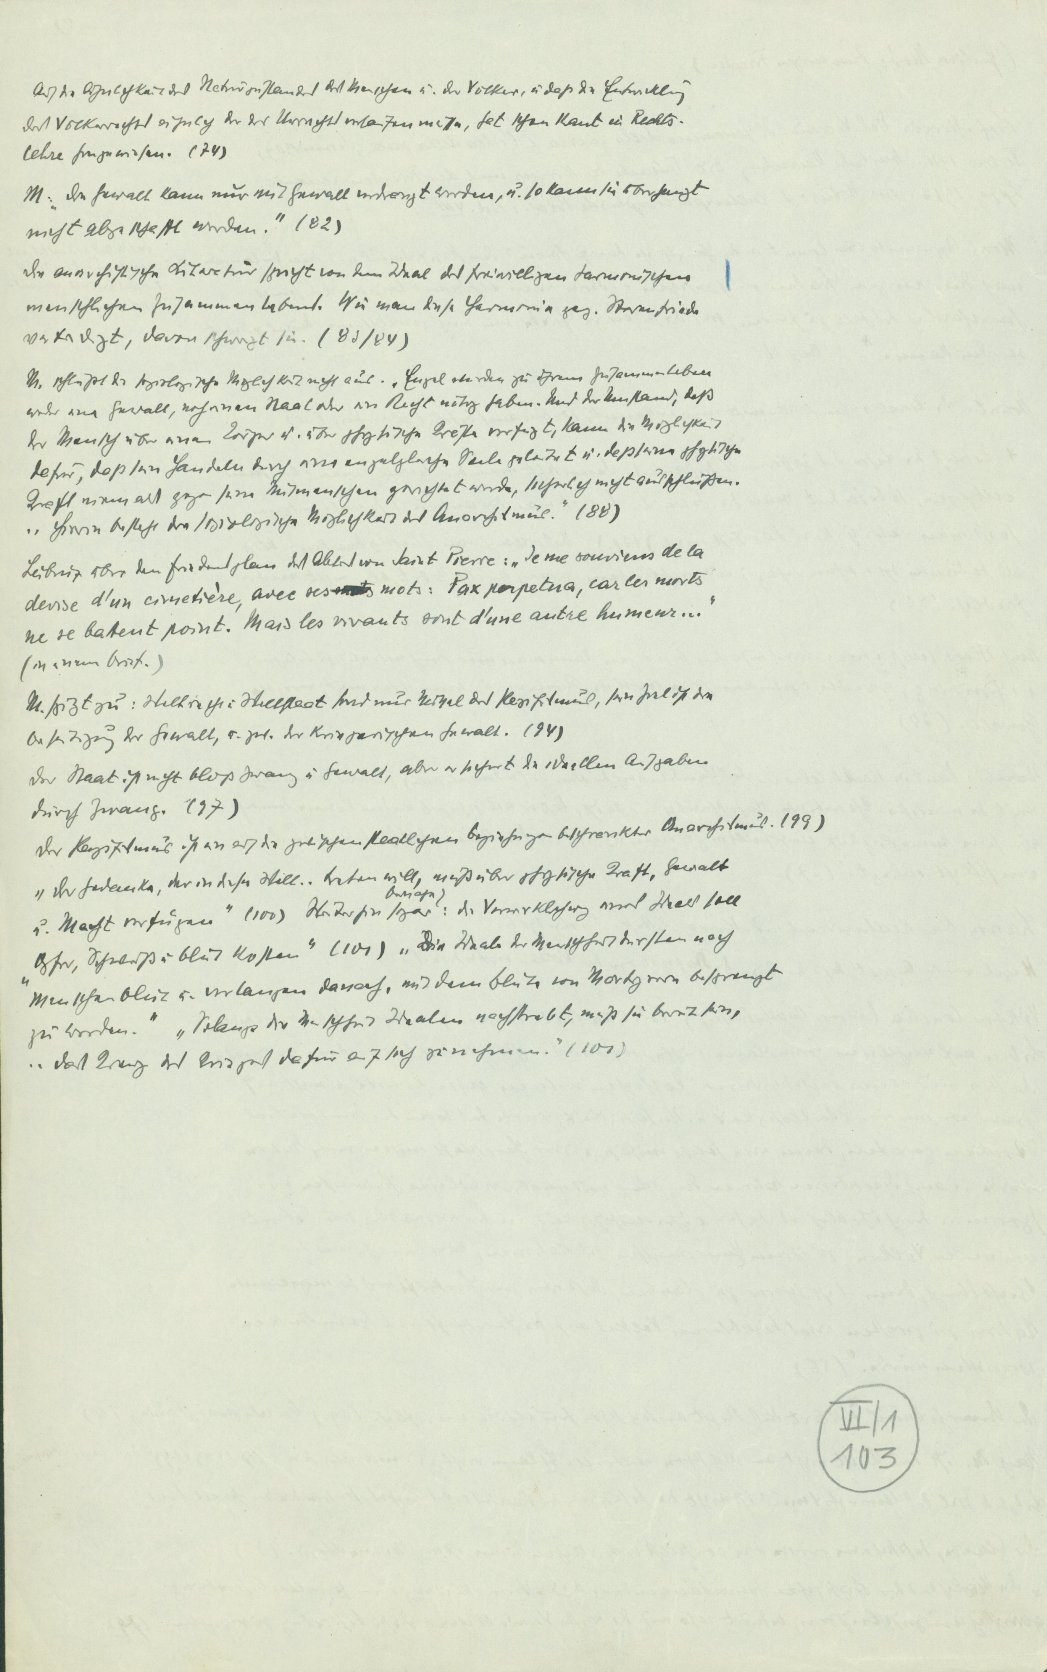 Auf die Ähnlichkeit des Naturzustandes des Menschen u. der Völker, u. daß die Entwicklung
des Völkerrechts ähnlich der des Urrechts verlaufen müsse, hat schon Kant in Rechts-
lehre hingewiesen. (74)
M.: "Die Gewalt kann nur mit Gewalt verdrängt werden, u. so kann sie überhaupt
nicht abgeschafft werden." (82)
Die anarchistische Literatur spricht von dem Ideal des freiwilligen harmonischen
menschlichen Zusammenlebens. Wie man diese Harmonie geg. Störenfriede
verteidigt, davon schweigt sie. (83/84)
M. schließt die soziologische Möglichkeit nicht aus. "Engel würden zu ihrem Zusammenleben
weder eine Gewalt, noch einen Staat oder ein Recht nötig haben. Und der Umstand, daß
der Mensch über einen Körper u. über physische Kräfte verfügt, kann die Möglichkeit
dafür, daß sein Handeln durch eine engelgleiche Seele geleitet u. daß seine physische
Kraft niemals gegen seine Mitmenschen gerichtet werde, sicherlich nicht ausschließen.
.. Hierin besteht die soziologische Möglichkeit des Anarchismus." (88)
Leibniz über den Friedensplan des Abbés von Saint Pierre: "Je me souviens de la
devise d'un cimetière, avec ses mots: Pax perpetua, car les morts
ne se battent point. Mais les vivants sont d'une autre humeur..."
(in einem Brief.)
M. fügt zu: Weltreich u. Weltstaat sind nur Mittel des Pazifismus, sein Ziel ist die
Beseitigung der Gewalt, u. zw. der kriegerischen Gewalt. (94)
Der Staat ist nicht bloß Zwang u. Gewalt, aber er sichert die ideellen Aufgaben
durch Zwang. (97)
Der Pazifismus ist ein auf die zwischenstaatlichen Beziehungen beschränkter Anarchismus. (99)
"Der Gedanke, der in diese Welt.. treten will, muß über physische Kraft, Gewalt
u. Macht verfügen" (100) : die Verwirklichung eines Ideals soll
"Opfer, Schweiß u. Blut kosten" (101) "Die Ideale der Menschheit dürsten nach
Menschenblut u. verlangen danach, mit dem Blute von Märtyrern besprengt
zu werden." "Solange die Menschheit Idealen nachstrebt, muß sie bereit sein,
.. das Kreuz des Krieges dafür auf sich zu nehmen." (101)
VI/1
103